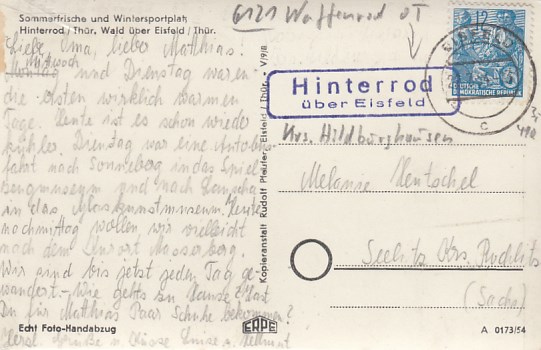 Sommerfrische und Wintersportplatz
Hinterrod / Thür. Wald über Eisfeld / Thür.
Liebe Oma, lieber Matthias!
Mittwoch
Montag und Dienstag waren
die ersten wirklich warmen
Tage. Heute ist es schon wieder
kühler. Dienstag war eine Autobus-
fahrt nach Sonneberg in das Spiel-
zeugmuseum und nach Lauscha
in das Glaskunstmuseum. Heute
nachmittag wollen wir vielleicht
nach dem Kurort Masserberg.
Wir sind bis jetzt jeden Tag ge-
wandert. - Wie gehts zu Hause? Hast
Du für Matthias Paar Schuhe bekommen?
Herzl. Grüße u. Küsse und Hellmut
Echt Foto-Handabzug
Kopieranstalt Rudolf Pfeufer, Eisfeld / Thür. V/9/8
6121 Waffenrod OT
Hinterrod
über Eisfeld
EISFELD
12
c
DEUTSCHE
DEMOKRATISCHE REPUBLIK
5
Krs. Hildburghausen
Melanie Hentschel
Seelitz Krs. Rochlitz
(Sachs)
ERPE
A 0173/54